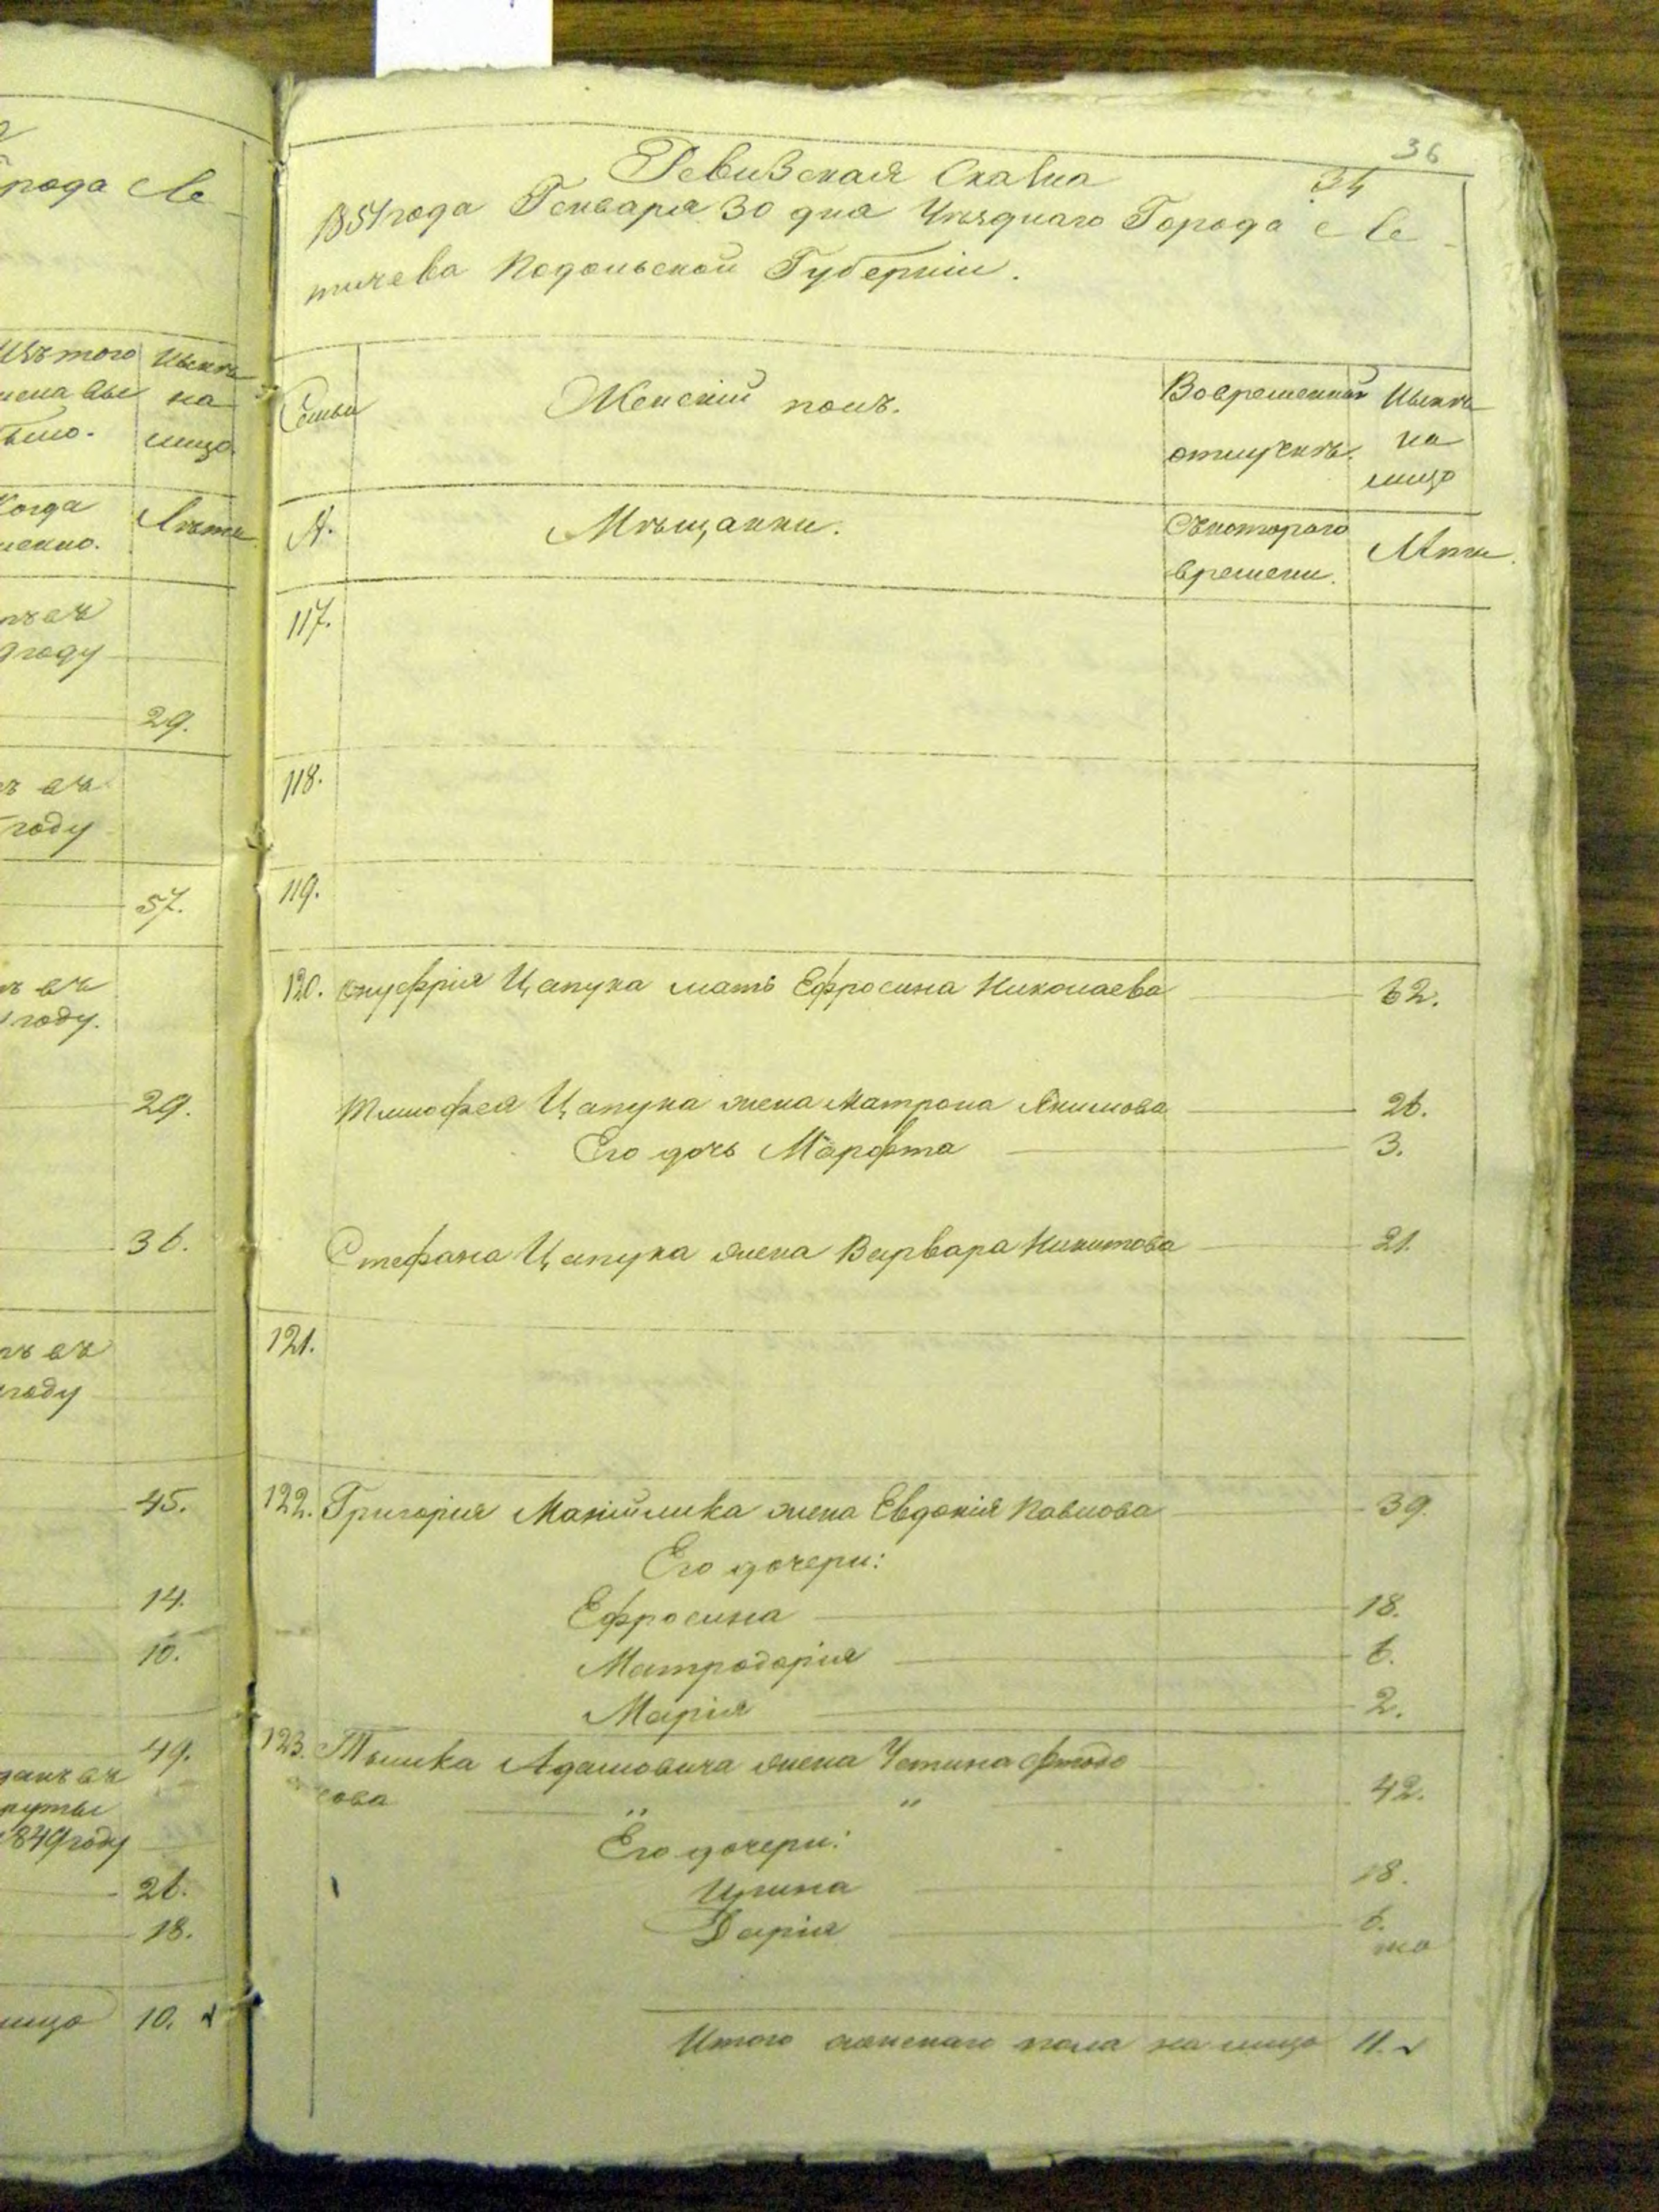 рода Ле
Изъ того
Нынѣ
на
лицо.
Когда
Лѣта
году
29.
году
57.
году.
29.
36.
году
45.
14.
10.
49.
1849 году
26.
18.
лицо 10.
36
34
Ревизская Сказка
1851 года Генваря 30 дня Уѣзднаго Города Ле-
тичева Подольской Губерніи.
Семьи
Женскій полъ.
Во временной
отлучкѣ.
Нынѣ
на
лицо
№.
Мѣщанки.
Съ котораго
времени.
Лѣта.
117.
118.
119.
120. Онуфрія Цапука мать Ефросина Николаева 62.
Тимофея Цапука жена Матрона Якимова 26.
Его дочь Марфта 3.
Стефана Цапука жена Варвара Никитова 21.
121.
122. Григорія Манійлика жена Евдокія Павлова 39.
Его дочери:
Ефросина 18.
Матродорія 6.
Марія 2.
123. Тымка Адамовича жена Устина Фтодо
сова " " 42.
Его дочери:
Ирина 18.
Дарія 6.
Итого женскаго пола на лицо 11.